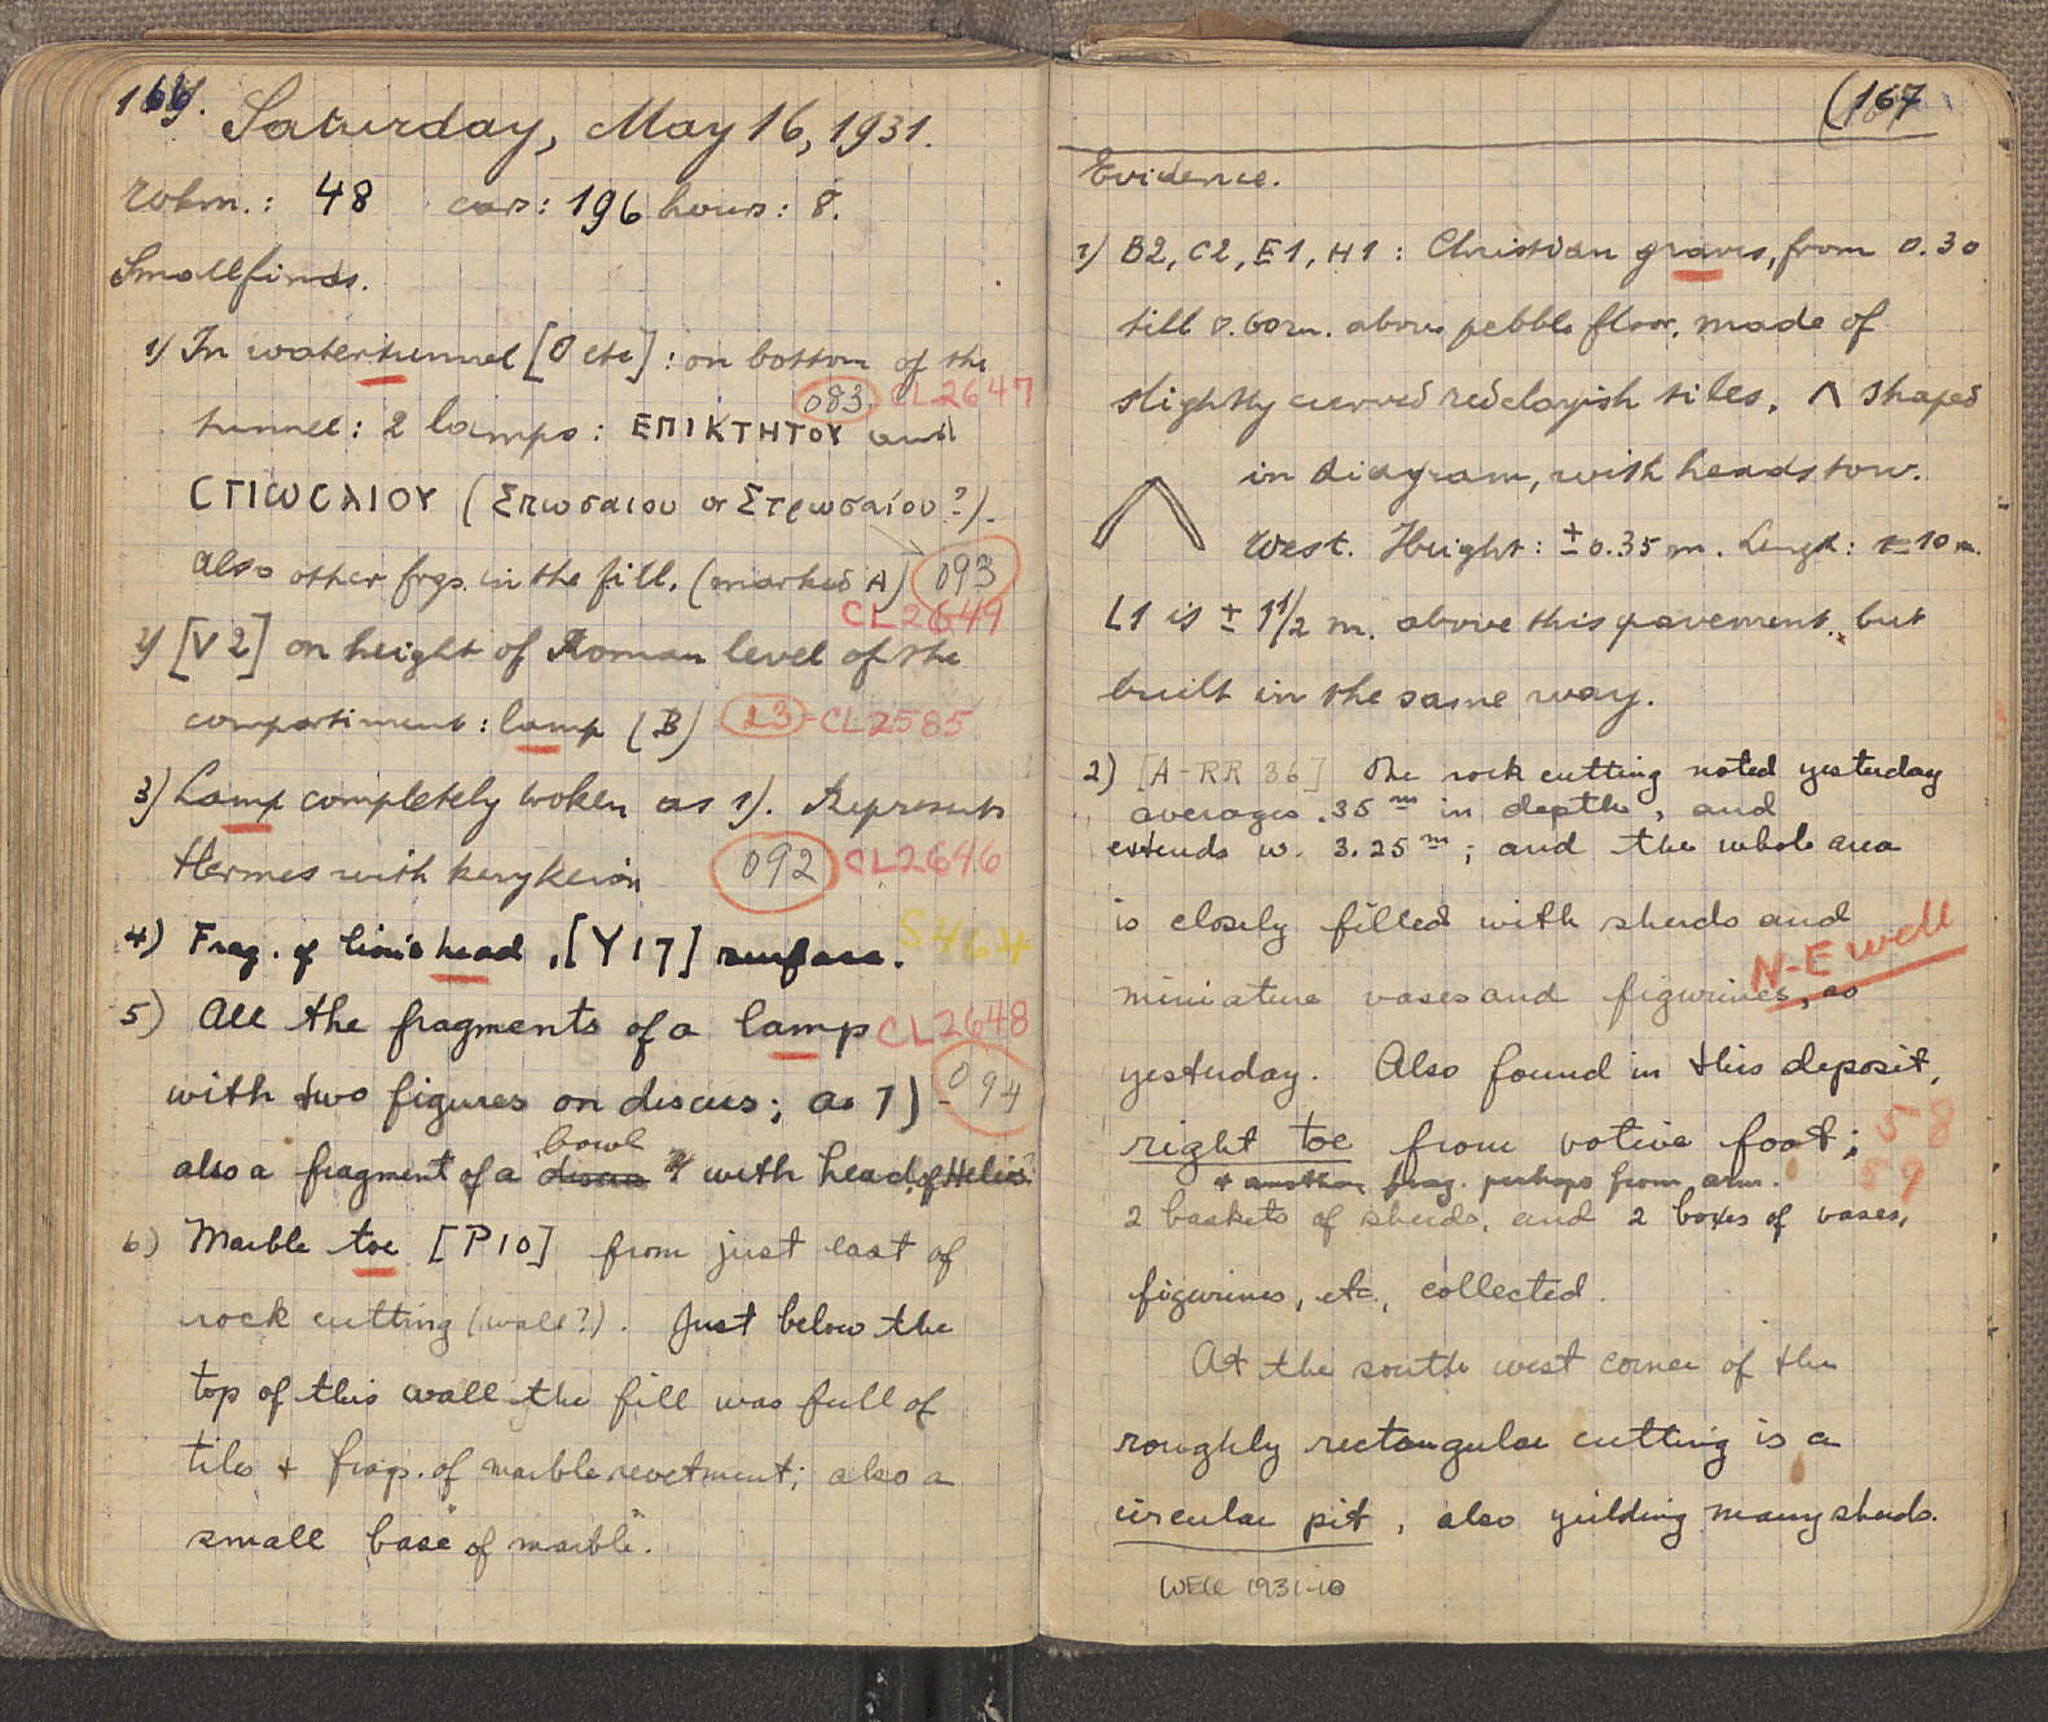 166.
Saturday, May 16, 1931.
wkm.: 48 cars: 196 hours: 8.
Smallfinds.
1) In watertunnel [O etc]: on bottom of the
083 CL2647
tunnel: 2 lamps: ΕΠΙΚΤΗΤΟΥ and
CΠΩCΛΙΟΥ (Σπωσαιου or Στρωσαίου?).
also other frgs. in the fill. (marked A) 093
CL2649
2) [V2] on height of Roman level of the
compartiment: lamp (B) 23-CL2585
3) Lamp completely broken as 1). Represents
Hermes with kerykeion 092 CL2646
4) Frag. of lion's head, [Y17] surface. S464
5) All the fragments of a lamp CL2648
with two figures on discus; as 1) - 094
bowl
also a fragment of a discus with head of Helios
6) Marble toe [P10] from just east of
rock cutting (wall?). Just below the
top of this wall the fill was full of
tiles + frags. of marble revetment; also a
small "base of marble".
(167
Evidence.
1) B2, C2, E1, H1: Christian graves, from 0.30
till 0.60m. above pebble floor, made of
slightly curved redclayish tiles, Λ shaped
in diagram, with heads tow.
West. Height: ± 0.35 m. Length: ± 10 m.
L1 is ± 1 1/2 m. above this pavement, but
built in the same way.
2) [A-RR 36] The rock cutting noted yesterday
averages .35 m in depth, and
extends w. 3.25 m; and the whole area
is closely filled with sherds and
N-E well
miniature vases and figurines, as
yesterday. Also found in this deposit,
right toe from votive foot; 58
+ another frag. perhaps from arm. 59
2 baskets of sherds, and 2 boxes of vases,
figurines, etc., collected.
At the south west corner of the
roughly rectangular cutting is a
circular pit, also yielding many sherds.
Well 1931-10